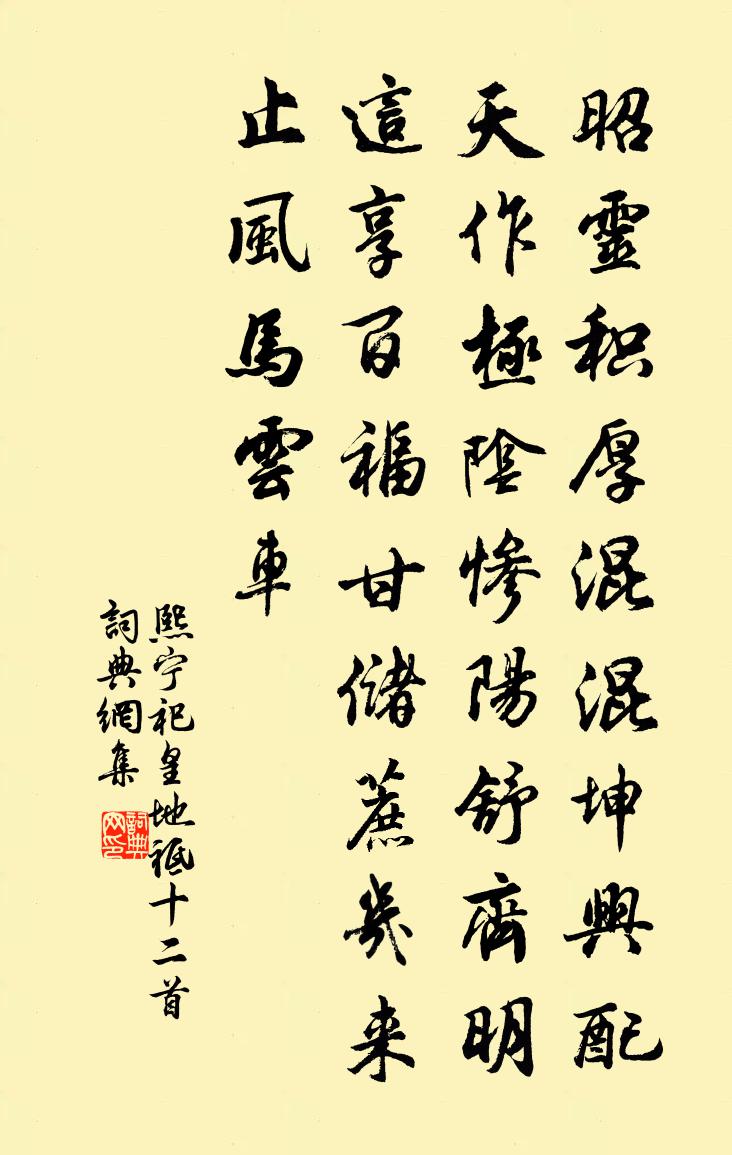 昭靈积厚混混坤輿配
天作極陰惨陽舒齊明
這享百福甘儲蔗幾来
止風馬雲車
熙宁祀皇地祗十二首
詞典網集
詞典网印